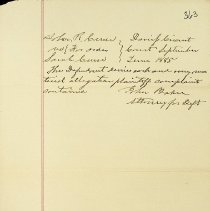 363
John R. Carver } Davis Circuit
vs { For order } Court September
Sarah Carver } Term 1885
The Defendant denies each and every ma
terial allegation plaintiffs complaint
contains
Baker
Attorney for Deft